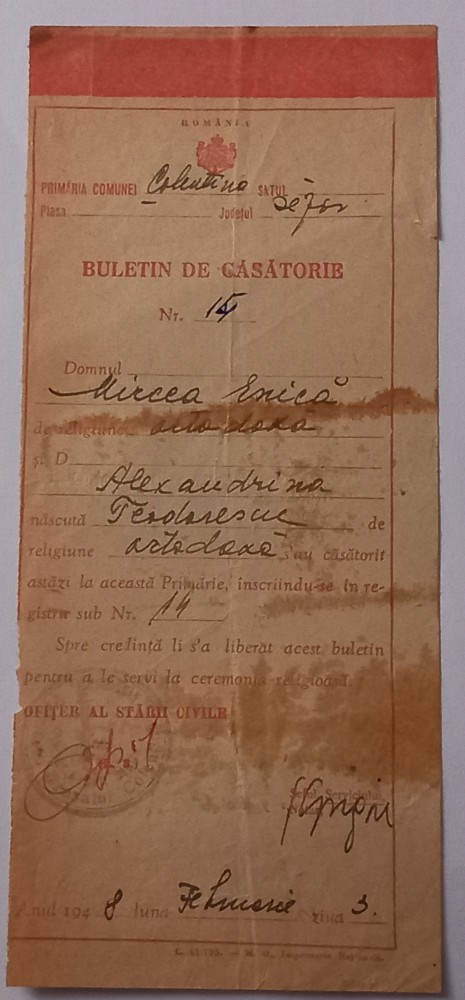 ROMÂNIA
PRIMĂRIA COMUNEI Colentina SATUL
Plasa Județul Ilfov
BULETIN DE CĂSĂTORIE
Nr. 14
Domnul
Mircea Enică
de religiune ortodoxa
și D
Alexandrina
născută Teodorescu de
religiune ortodoxă s'au căsătorit
astăzi la această Primărie, înscriindu-se în re-
gistru sub Nr. 14
Spre credință li s'a liberat acest buletin
pentru a le servi la ceremonia religioasă.
OFIȚER AL STĂRII CIVILE
Șeful Serviciului
Anul 1948 luna Februarie ziua 3.
M. O., Imprimeria Națională.